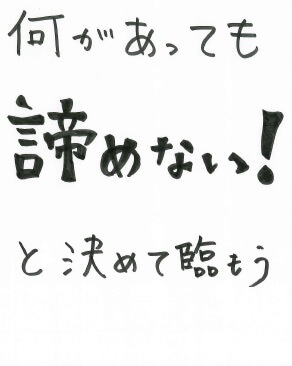 何があっても
諦めない!
と決めて臨もう